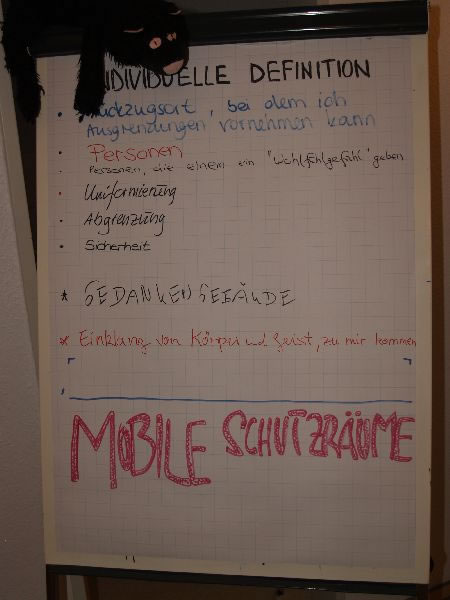 INDIVIDUELLE DEFINITION
• Rückzugsort, bei dem ich
Ausgrenzungen vornehmen kann
• Personen
• Personen, die einem ein "Wohlfühlgefühl" geben
• Uniformierung
• Abgrenzung
• Sicherheit
* GEDANKENGEBÄUDE
* Einklang von Körper und Geist, zu mir kommen
MOBILE SCHUTZRÄUME